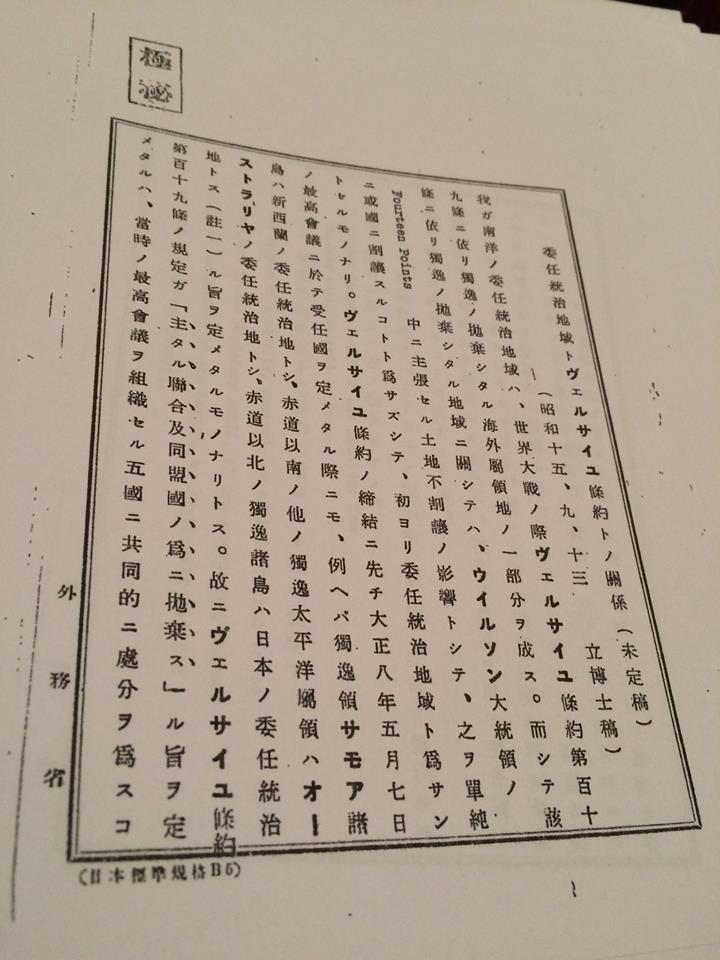 極秘
委任統治地域トヴェルサイユ條約トノ關係(未定稿)
―(昭和十五、九、十三 立博士稿)
我ガ南洋ノ委任統治地域ハ、世界大戰ノ際ヴェルサイユ條約第百十
九條ニ依リ獨逸ノ拋棄シタル海外屬領地ノ一部分ヲ成ス。而シテ該
條ニ依リ獨逸ノ拋棄シタル地域ニ關シテハ、ウイルソン大統領ノ
Fourteen Points 中ニ主張セル土地不割讓ノ影響トシテ、之ヲ單純
ニ或國ニ割讓スルコトト爲サズシテ、初ヨリ委任統治地域ト爲サン
トセルモノナリ。ヴェルサイユ條約ノ締結ニ先チ大正八年五月七日
ノ最高會議ニ於テ受任國ヲ定メタル際ニモ、例ヘバ獨逸領サモア諸
島ハ新西蘭ノ委任統治地トシ、赤道以南ノ他ノ獨逸太平洋屬領ハオー
ストラリヤノ委任統治地トシ、赤道以北ノ獨逸諸島ハ日本ノ委任統治
地トス(註一)ル旨ヲ定メタルモノナリトス。故ニヴェルサイユ條約
第百十九條ノ規定ガ「主タル聯合及同盟國ノ爲ニ拋棄ス」ル旨ヲ定
メタルハ、當時ノ最高會議ヲ組織セル五國ニ共同的ニ處分ヲ爲スコ
外務省
(日本標準規格B5)